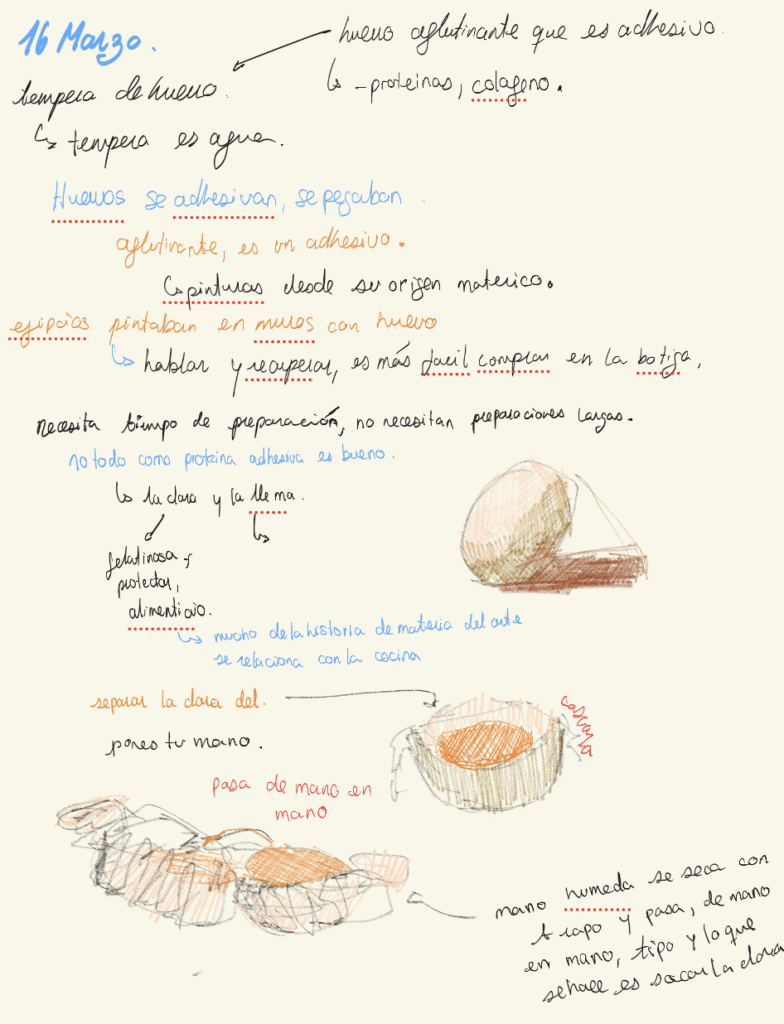 16 Marzo.
huevo aglutinante que es adhesivo.
tempera de huevo.
- proteinas, colageno.
tempera es agua.
Huevos se adhesivan, se pegaban.
aglutinante, es un adhesivo.
pinturas desde su origen materico.
egipcios pintaban en muros con huevo
hablar y recuperar, es más facil comprar en la botiga,
necesita tiempo de preparación, no necesitan preparaciones largas.
no todo como proteina adhesiva es bueno.
la clara y la llema.
gelatinosa y
protectar,
alimenticio.
mucho de la historia de materia del arte
se relaciona con la cocina
separar la clara del.
cascara
pones tu mano.
pasa de mano en
mano
mano humeda se seca con
trapo y pasa, de mano
en mano, tipo y lo que
se hace es sacar la clara